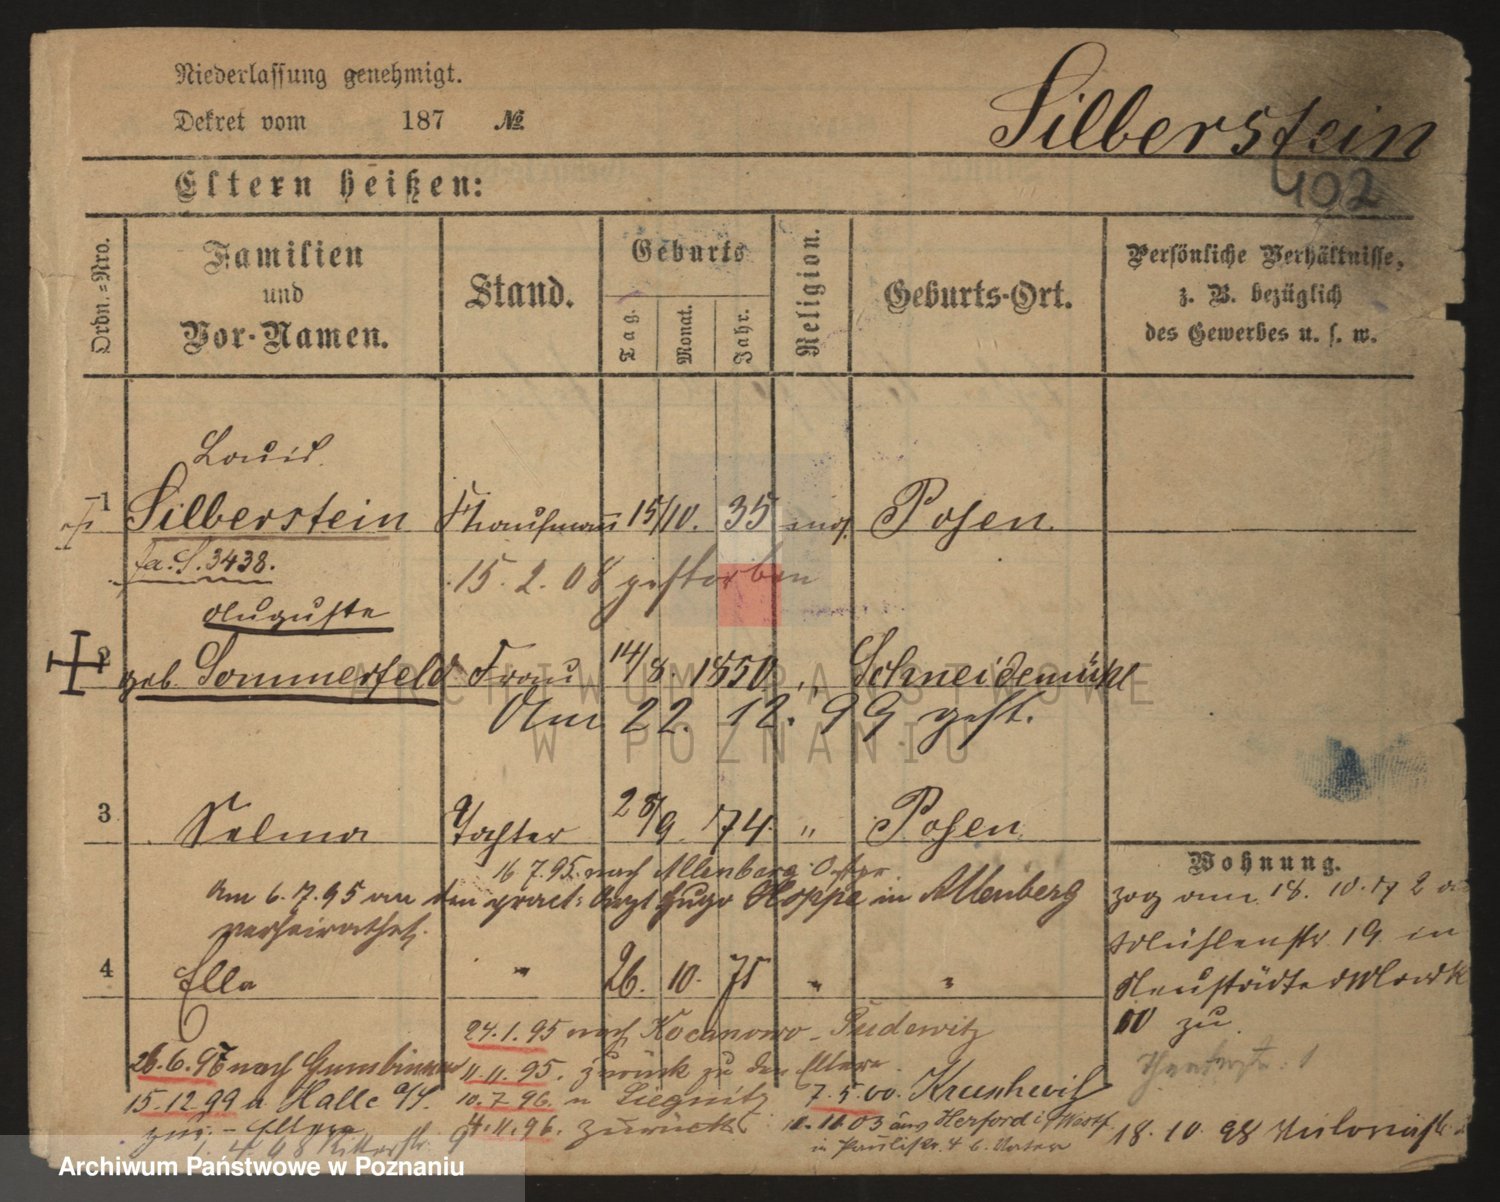 Niederlassung genehmigt.
Dekret vom 187 №
Silberstein
402
Eltern heißen:
Ordn.=Nro.
Familien
und
Vor-Namen.
Stand.
Geburts
Tag.
Monat.
Jahr.
Religion.
Geburts-Ort.
Persönliche Verhältnisse,
z. B. bezüglich
des Gewerbes u. s. w.
Louis
1 Silberstein Kaufmann 15/10. 35 mos. Posen
fa. S. 3438.
15. 2. 08 gestorben
Auguste
2 geb. Sommerfeld Frau 14/8. 1850 " Schneidemühl
Am 22. 12. 99 gest.
3 Selma Tochter 28/9. 74. " Posen
16 7.95. nach Allenberg Ostpr.
Am 6.7.95 an den pract: Arzt Hugo Hoppe in Allenberg
verheirathet.
4 Ella " 26. 10. 75 " "
Wohnung.
zog am 18. 10. 72
Mühlenstr 19 in
Neustädter Markt
10 zu.
24.1.95 nach Kocanowo - Pudewitz
26.6.98 nach Gumbinnen
11.11.95. zurück zu den Eltern
15.12.99 n. Halle a/S.
10.7.96. n Liegnitz
7.5.00. Kruschwitz
zu Eltern
4.11.96. zurück
11.11.03 aus Herford i/Westf.
in Paulistr. 4 b. Vater
1. 4 98 Ritterstr. 9
18. 10. 98
ARCHIWUM PAŃSTWOWE
W POZNANIU
Archiwum Państwowe w Poznaniu